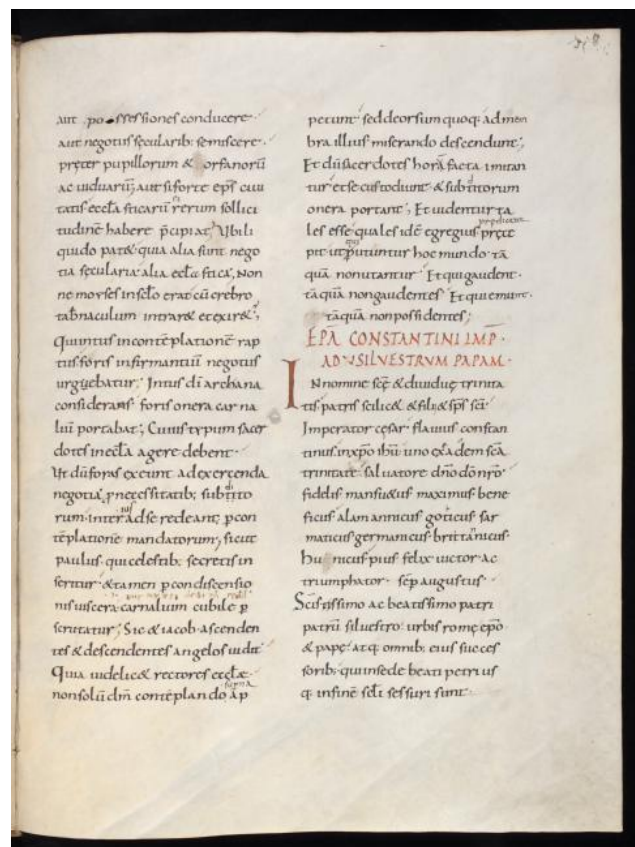 aut possessiones conducere
aut negotiis sęcularib; se miscere
pręter pupillorum & orfanorū
ac uiduarū; aut si forte ep̄s ciui
tatis eccl̄a sticarū rerum sollici
tudinē habere p̄cipiat; Vbi li
quido pat& quia alia sunt nego
tia sęcularia alia eccl̄a stica; Non
ne moyses in sc̄lo erat cū crebro
tab̄naculum intrar& et exir&;
Quintus in contēplationē rap
tus foris infirmantiū negotiis
urguebatur; Intus dī archana
considerans foris onera carna
liū portabat; Cuius typum sacer
dotes in eccl̄a agere debent
Vt dū foras exeunt ad exercenda
negotia p necessitatib; subditito
rum interius ad se redeant; p con
tēplationē mandatorum; sicut
paulus qui celestib; secretis in
seritur & tamen p condiscensio
nis uiscera carnalium cubile p
scrutatur; Sic & iacob ascenden
tes & descendentes angelos uidit
Quia uidelic& rectores eccl̄æ
non solū dm̄ contēplando superna ap
petunt sed deorsum quoq; ad mem
bra illius miserando descendunt;
Et dū sacerdotes horā facta imitan
tur et se custodiunt & subditorum
onera portant; Et uidentur ta
les esse quales idē egregius predicator pręce
pit ut qui utuntur hoc mundo tā
quā non utantur Et qui gaudent
tāquā non gaudentes Et qui emunt
tāquā non possidentes;
EPĀ CONSTANTINI IMP̄
AD SILVESTRVM PAPAM
IN nomine scę & diuiduę trinita
tis patris scilic& & filii & sp̄s scī
Imperator cęsar flauius constan
tinus in xp̄o ihū uno ex eadem scā
trinitate saluatore dn̄o dō nr̄o
fidelis mansu&us maximus bene
ficus alamannicus goticus sar
maticus germanicus brittanicus
hunicus pius felix uictor ac
triumphator sēp augustus
Scīstissimo ac beatissimo patri
patrū siluestro urbis romę ep̄o
& papę atq; omnib; eius succes
sorib; qui in sede beati petri us
q; in finē sc̄li sessuri sunt